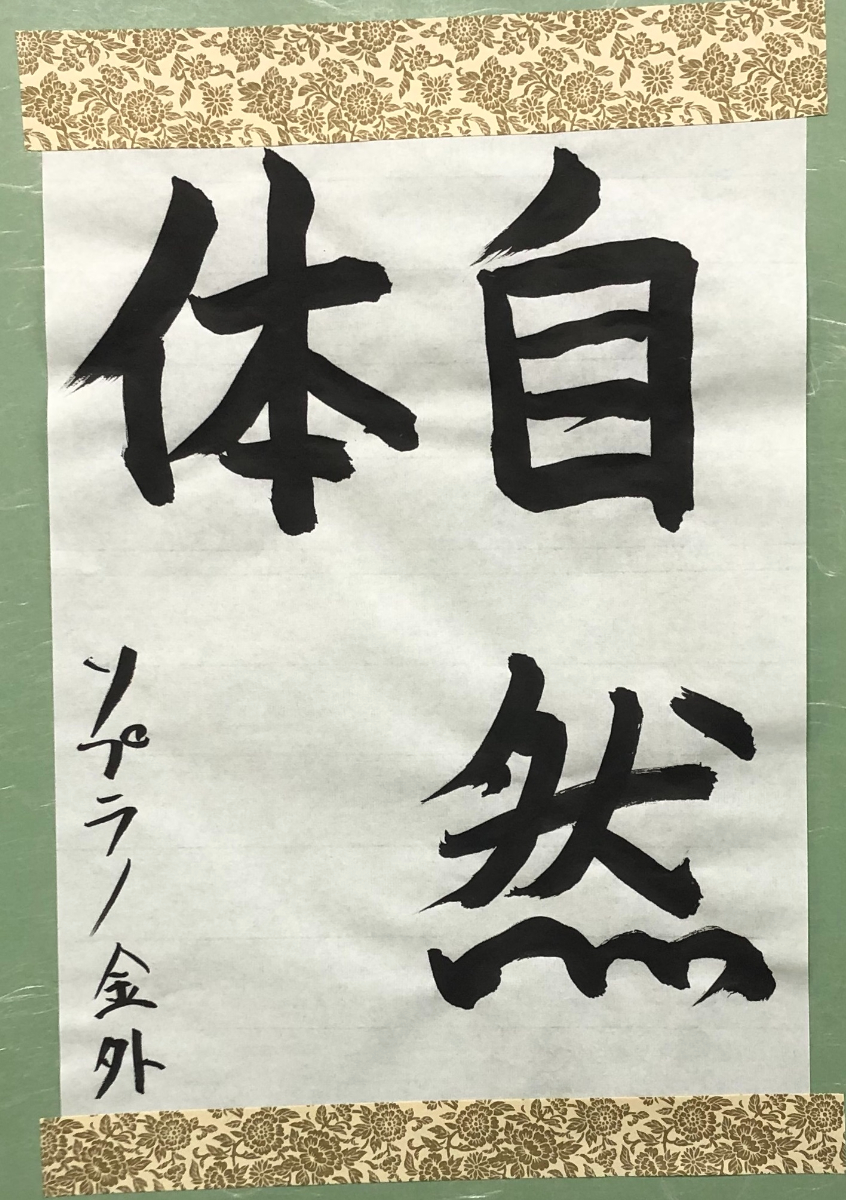 自然
体
ソプラノ金外